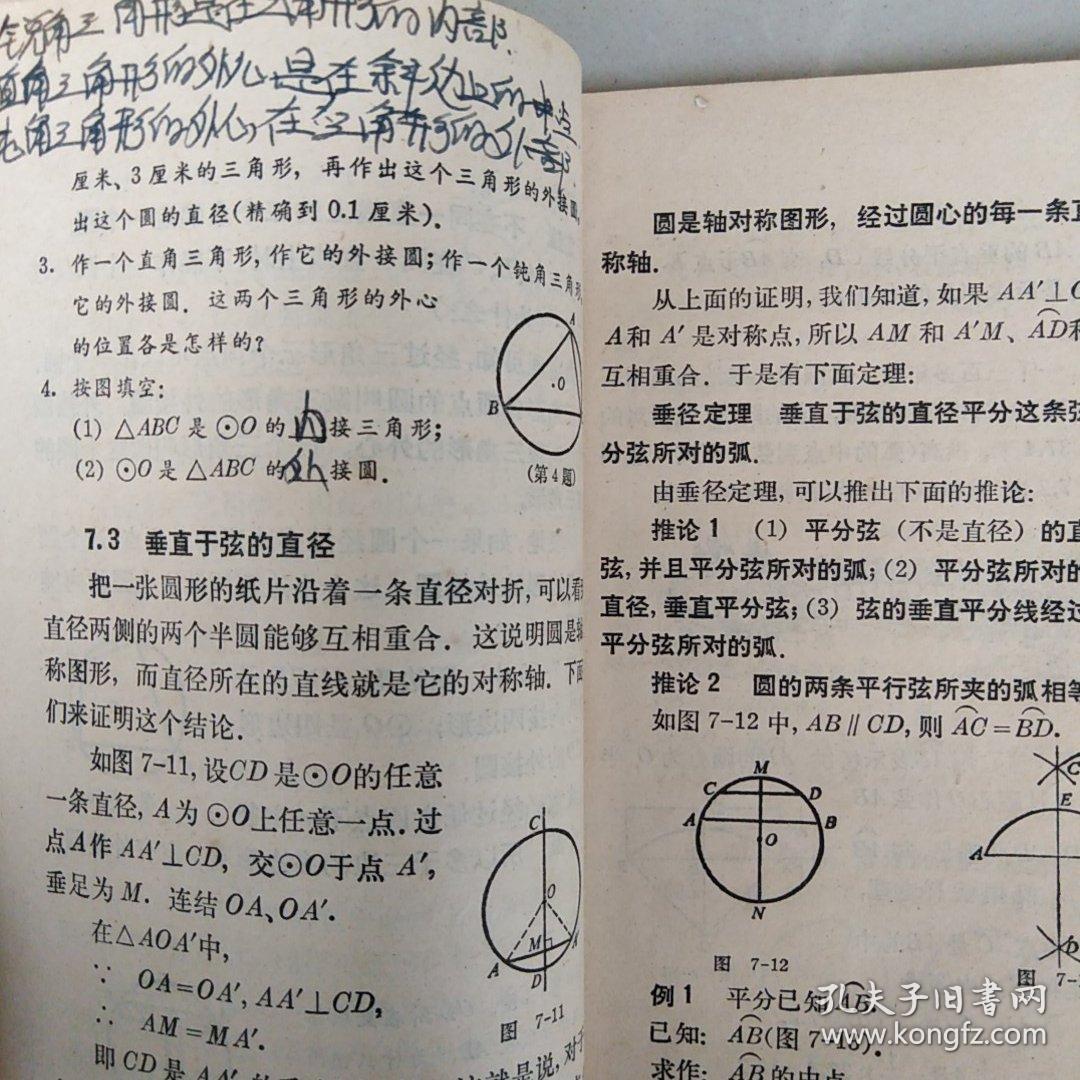 锐角三角形是在三角形的内部.
直角三角形的外心是在斜边上的中点
钝角三角形的外心在三角形的外部
厘米、3厘米的三角形，再作出这个三角形的外接圆,
出这个圆的直径(精确到 0.1 厘米).
3. 作一个直角三角形,作它的外接圆;作一个钝角三角形,
它的外接圆. 这两个三角形的外心
的位置各是怎样的?
4. 按图填空:
(1) △ABC 是 ⊙O 的内接三角形;
(2) ⊙O 是 △ABC 的外接圆.
A
O
B
(第4题)
7.3 垂直于弦的直径
把一张圆形的纸片沿着一条直径对折,可以看
直径两侧的两个半圆能够互相重合. 这说明圆是轴
称图形,而直径所在的直线就是它的对称轴. 下面
们来证明这个结论.
如图 7-11,设CD是⊙O的任意
一条直径,A为⊙O上任意一点.过
点A作 AA′⊥CD, 交⊙O于点 A′,
垂足为 M. 连结 OA、OA′.
在△AOA′中,
∵ OA=OA′, AA′⊥CD,
∴ AM=MA′.
即 CD 是 AA′ 的
就是说,对于
C
O
M
A
D
图 7-11
圆是轴对称图形, 经过圆心的每一条直
称轴.
从上面的证明,我们知道,如果 AA′⊥C
A和 A′ 是对称点,所以 AM 和 A′M、A͡D和
互相重合. 于是有下面定理:
垂径定理 垂直于弦的直径平分这条弦
分弦所对的弧.
由垂径定理,可以推出下面的推论:
推论 1 (1) 平分弦 (不是直径) 的直
弦,并且平分弦所对的弧; (2) 平分弦所对的
直径,垂直平分弦; (3) 弦的垂直平分线经过
平分弦所对的弧.
推论 2 圆的两条平行弦所夹的弧相等
如图 7-12 中, AB∥CD, 则 A͡C=B͡D.
M
C D
A B
O
N
图 7-12
C
E
A
D
图 7-1
例 1 平分已知 A͡B.
已知: A͡B(图 7-13).
求作: A͡B的中点
孔夫子旧书网
www.kongfz.com